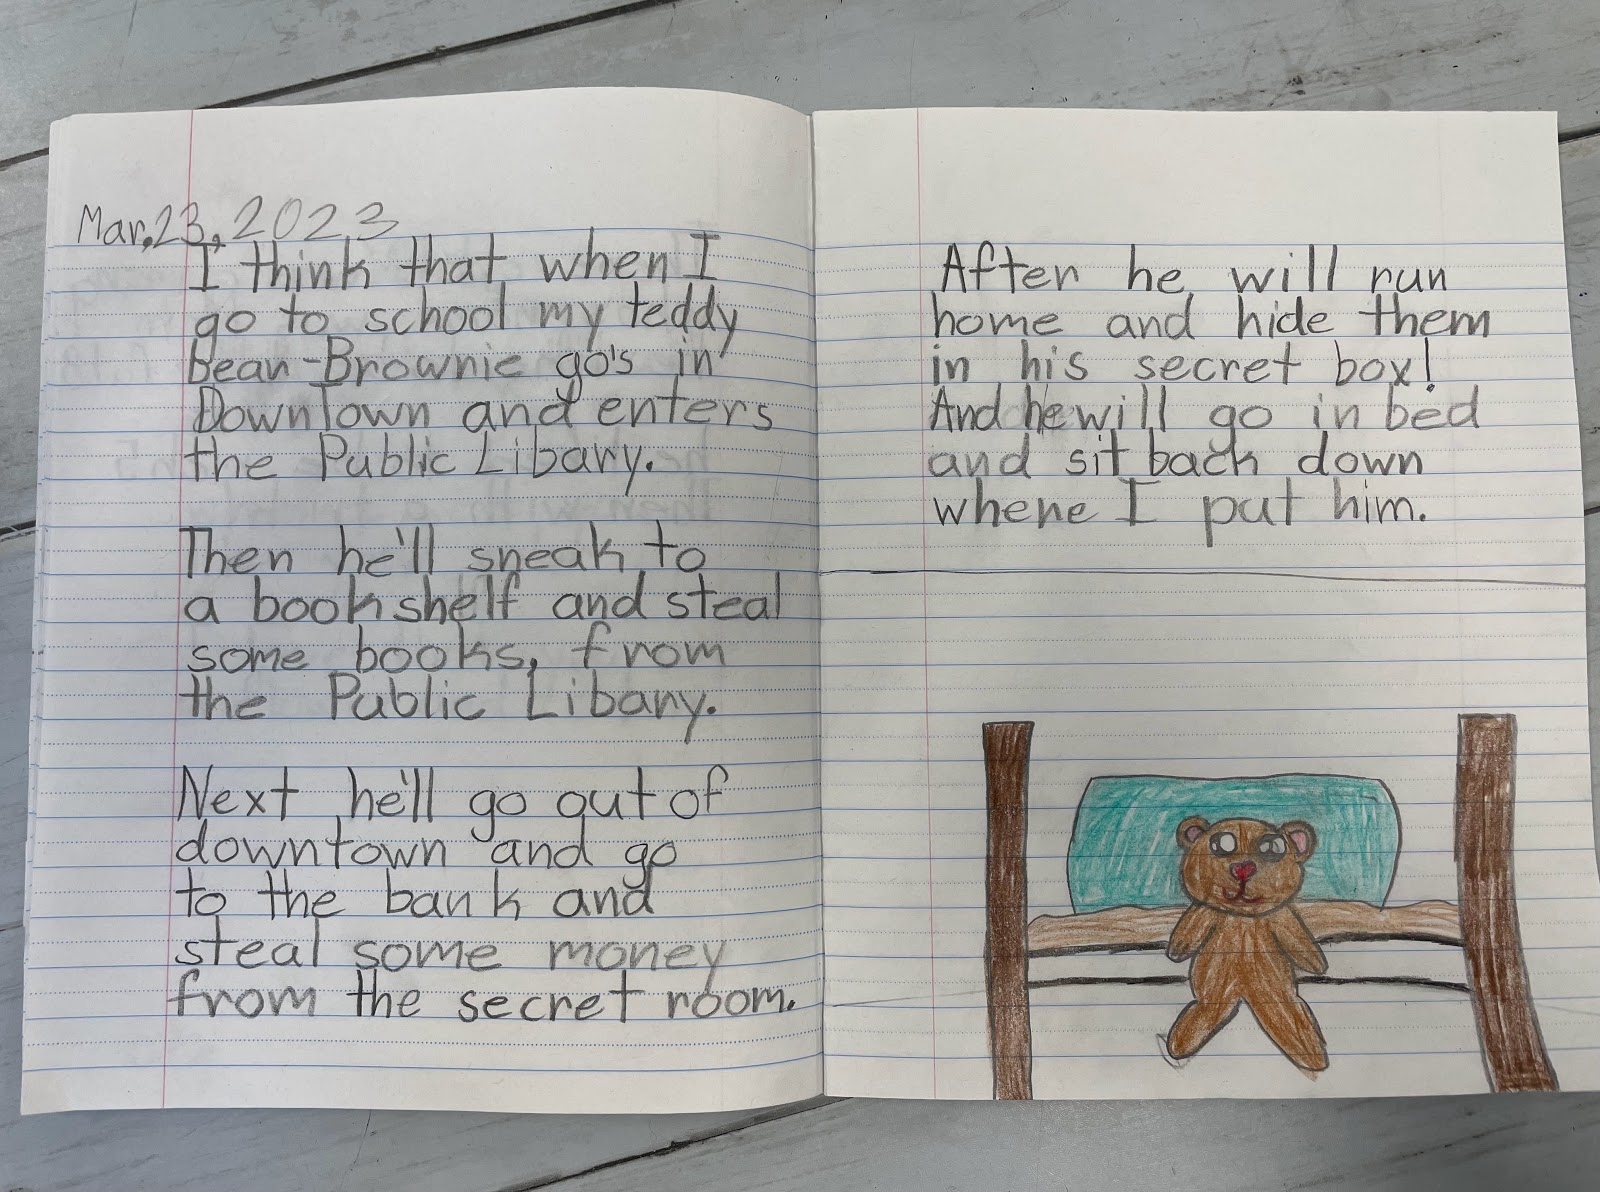 Mar.23, 2023
I think that when I
go to school my teddy
bear-Brownie go's in
Downtown and enters
the Public Libary.
Then he'll sneak to
a bookshelf and steal
some books, from
the Public Libary.
Next he'll go out of
downtown and go
to the bank and
steal some money
from the secret room.
After he will run
home and hide them
in his secret box!
And he will go in bed
and sit back down
where I put him.